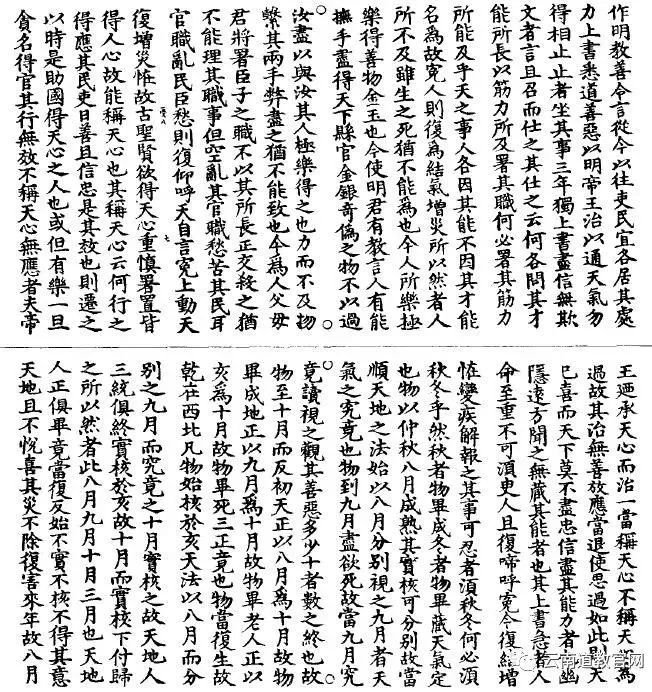 作明教善令言從今以往吏民宜各居其處
力上書悉道善惡以明帝王治以通天氣勿
得相止止者坐其事三年獨上書盡信無欺
文者言且召而仕之其仕之云何各問其才
能所長以筋力所及署其職何必署其筋力
所能及乎天之事人各因其能不因其才能
名為故冤人則復為結氣增災所以然者人
所不及雖生之死猶不能為也今人所樂極
樂得善物金玉也今使明君有教言人有能
撫手盡得天下縣官金銀奇偽之物不以過
汝盡以與汝其人極樂得之也力而不及物
繫其兩手弊盡之猶不能致也今為人父母
君將署臣子之職不以其所長正交殺之猶
不能理其職事但空亂其官職愁苦其民耳
官職亂民臣愁則復仰呼天自言冤上動天
復增災恠故古聖賢欲得天心重慎署置皆
得人心故能稱天心也其稱天心云何行之
得應其民吏日善且信忠是其效也則遷之
以時是助國得天心之人也或但有樂一旦
貪名得官其行無效不稱天心無應者夫帝
王迺承天心而治一當稱天心不稱天心為
過故其治無善放應當退使思過如此則天
已喜而天下莫不盡忠信盡其能力者也幽
隱遠方聞之無藏其能者也其上書急者人
命至重不可須臾人且復啼呼冤今復結增
恠變疾解報之其事可忍者須秋冬何必須
秋冬乎然秋者物畢成冬者物畢藏天氣定
也物以仲秋八月成熟其實核可分別故當
順天地之法始以八月分別視之九月者天
氣之究竟也物到九月盡欲死故當九月究
竟讀視之觀其善惡多少十者數之終也故
物至十月而反初天正以八月為十月故物
畢成地正以九月為十月故物畢老人正以
亥為十月故物畢死三正竟也物當復生故
乾在西北凡物始核於亥天法以八月而分
別之九月而究竟之十月實核之故天地人
三統俱終實核於亥故十月而實核下付歸
之所以然者此八月九月十月三月也天地
人正俱畢竟當復反始不實不核不得其意
天地且不悅喜其災不除復害來年故八月
云南道教官网